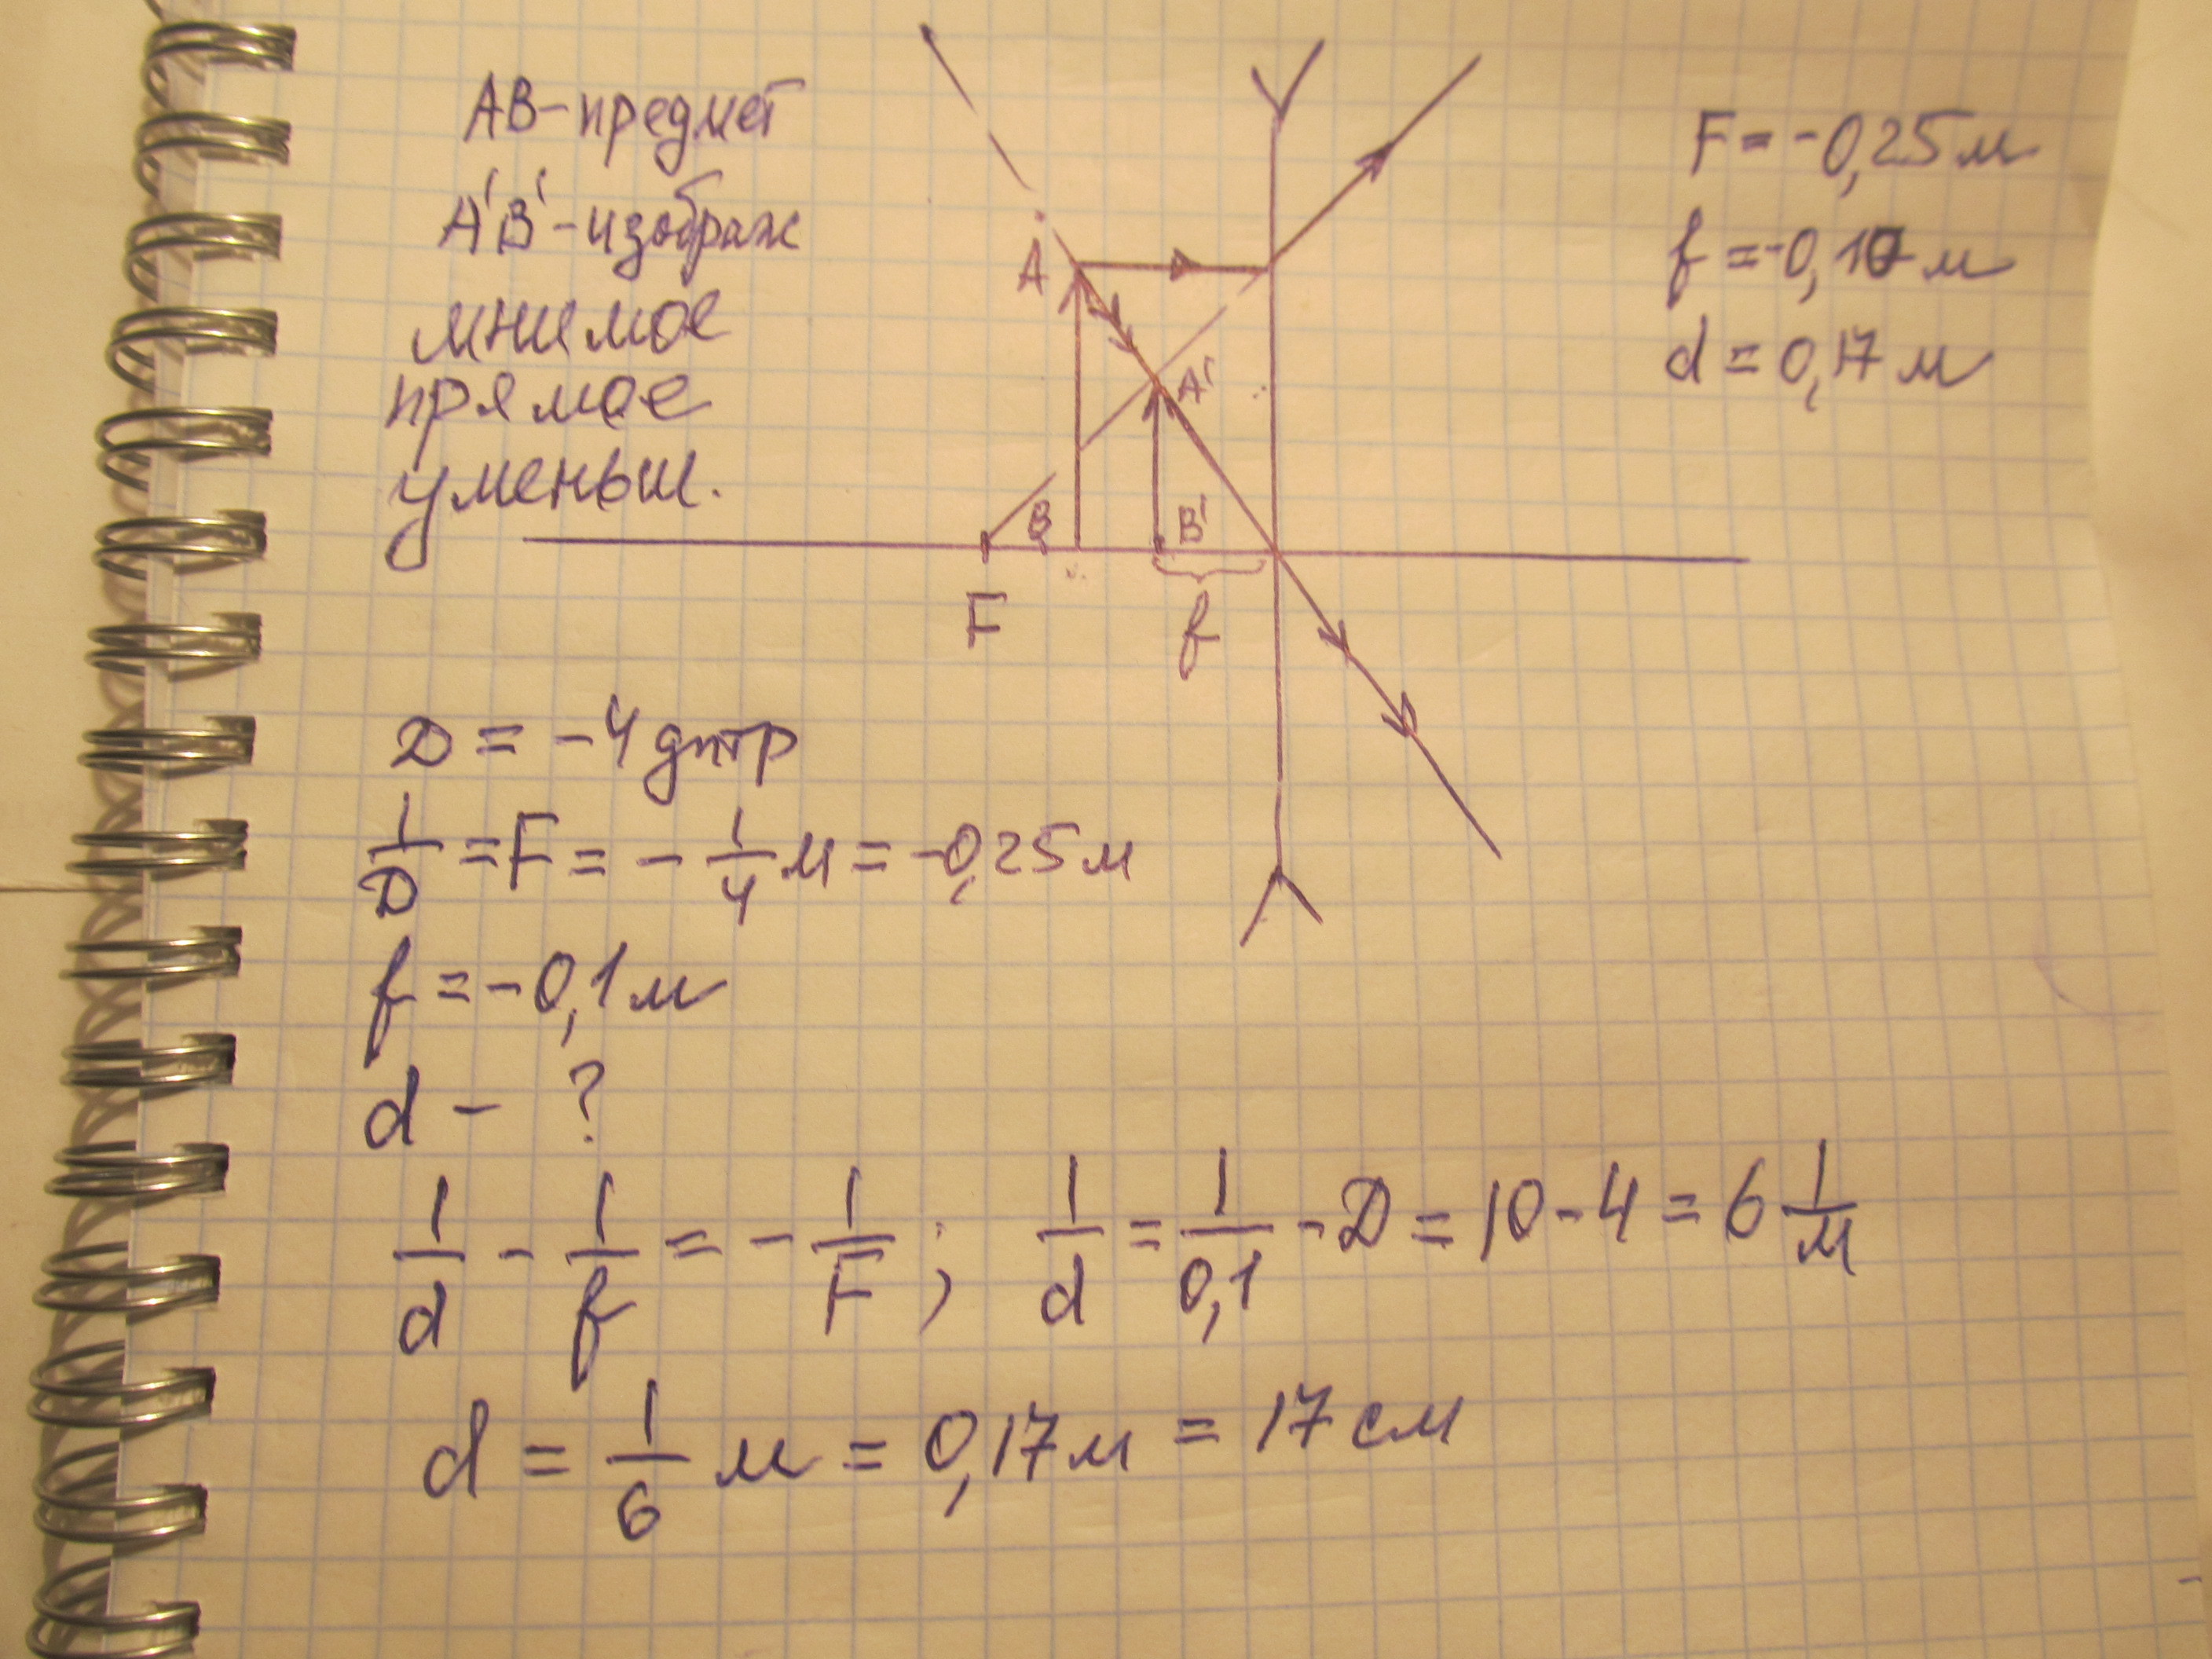 AB-предмет
A'B'-изображ
мнимое
прямое
уменьш.
F = -0,25 м
f = -0,10 м
d = 0,17 м
A
A'
B
B'
F
f
D = -4 дптр
1/D = F = - 1/4 м = -0,25 м
f = -0,1 м
d - ?
1/d - 1/f = - 1/F ; 1/d = 1/0,1 - D = 10 - 4 = 6 1/м
d = 1/6 м = 0,17 м = 17 см